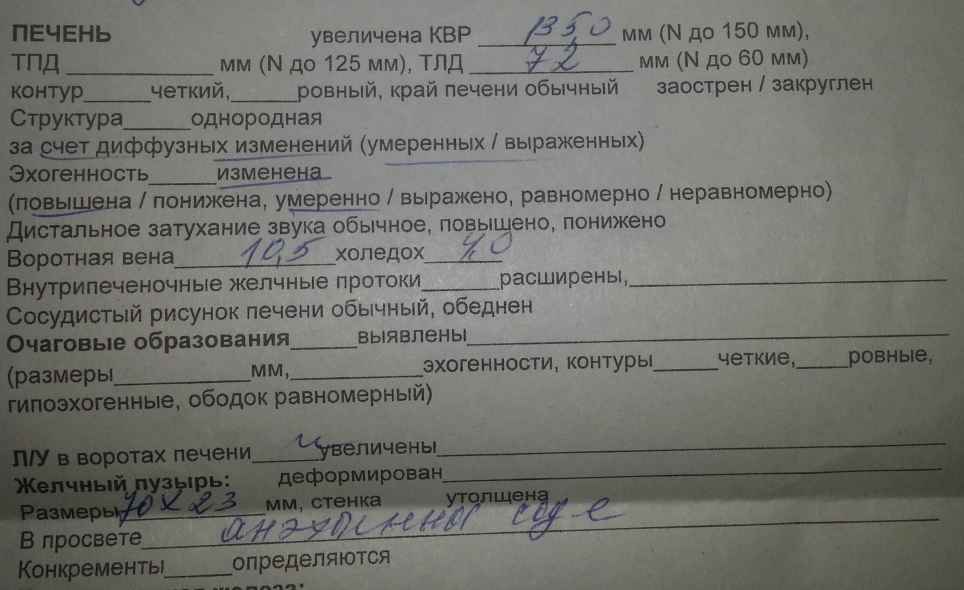 ПЕЧЕНЬ увеличена КВР 1350 мм (N до 150 мм),
ТПД ____ мм (N до 125 мм), ТЛД 72 мм (N до 60 мм)
контур____четкий,____ровный, край печени обычный заострен / закруглен
Структура____однородная
за счет диффузных изменений (умеренных / выраженных)
Эхогенность____изменена
(повышена / понижена, умеренно / выражено, равномерно / неравномерно)
Дистальное затухание звука обычное, повышено, понижено
Воротная вена 10,5 холедох 4,0
Внутрипеченочные желчные протоки____расширены,____
Сосудистый рисунок печени обычный, обеднен
Очаговые образования____выявлены____
(размеры____мм,____эхогенности, контуры____четкие,____ровные,
гипоэхогенные, ободок равномерный)
Л/У в воротах печени____увеличены____
Желчный пузырь: деформирован____
Размеры 70 х 23 мм, стенка утолщена
В просвете
Конкременты____определяются